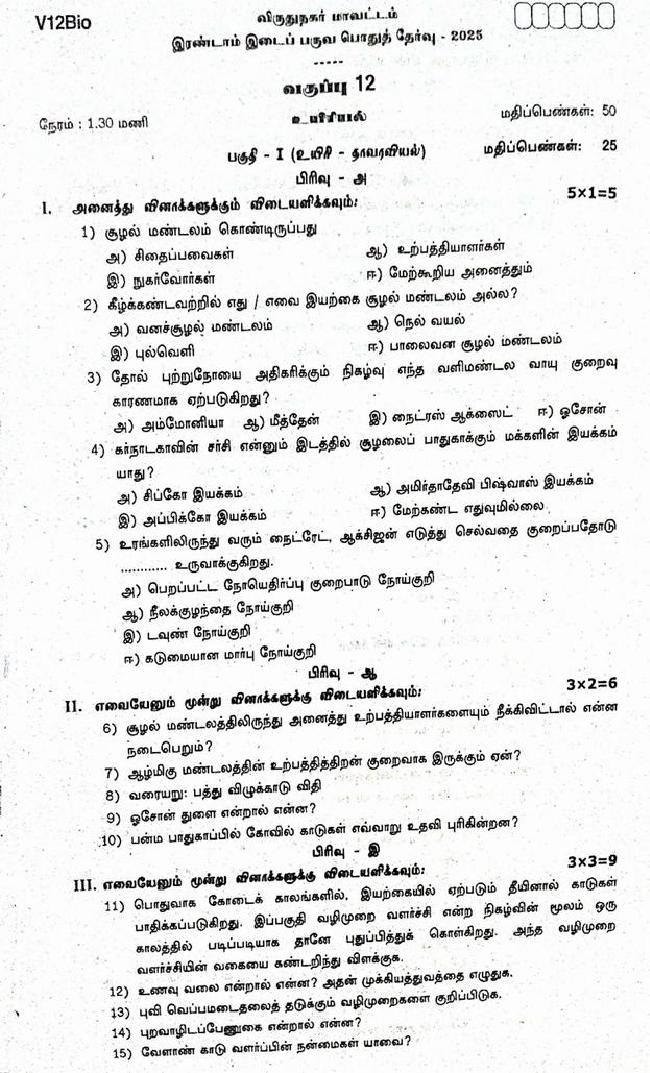 V12Bio
விருதுநகர் மாவட்டம்
இரண்டாம் இடைப் பருவ பொதுத் தேர்வு - 2025
-----
வகுப்பு 12
நேரம் : 1.30 மணி
உயிரியல்
மதிப்பெண்கள்: 50
பகுதி - I (உயிரி - தாவரவியல்)
மதிப்பெண்கள்: 25
பிரிவு - அ
I. அனைத்து வினாக்களுக்கும் விடையளிக்கவும்: 5×1=5
1) சூழல் மண்டலம் கொண்டிருப்பது
அ) சிதைப்பவைகள் ஆ) உற்பத்தியாளர்கள்
இ) நுகர்வோர்கள் ஈ) மேற்கூறிய அனைத்தும்
2) கீழ்க்கண்டவற்றில் எது / எவை இயற்கை சூழல் மண்டலம் அல்ல?
அ) வனச்சூழல் மண்டலம் ஆ) நெல் வயல்
இ) புல்வெளி ஈ) பாலைவன சூழல் மண்டலம்
3) தோல் புற்றுநோயை அதிகரிக்கும் நிகழ்வு எந்த வளிமண்டல வாயு குறைவு
காரணமாக ஏற்படுகிறது?
அ) அம்மோனியா ஆ) மீத்தேன் இ) நைட்ரஸ் ஆக்ஸைட் ஈ) ஓசோன்
4) கர்நாடகாவின் சர்சி என்னும் இடத்தில் சூழலைப் பாதுகாக்கும் மக்களின் இயக்கம்
யாது?
அ) சிப்கோ இயக்கம் ஆ) அமிர்தாதேவி பிஷ்வாஸ் இயக்கம்
இ) அப்பிக்கோ இயக்கம் ஈ) மேற்கண்ட எதுவுமில்லை
5) உரங்களிலிருந்து வரும் நைட்ரேட், ஆக்சிஜன் எடுத்து செல்வதை குறைப்பதோடு
............ உருவாக்குகிறது.
அ) பெறப்பட்ட நோயெதிர்ப்பு குறைபாடு நோய்குறி
ஆ) நீலக்குழந்தை நோய்குறி
இ) டவுண் நோய்குறி
ஈ) கடுமையான மார்பு நோய்குறி
பிரிவு - ஆ
II. எவையேனும் மூன்று வினாக்களுக்கு விடையளிக்கவும்: 3×2=6
6) சூழல் மண்டலத்திலிருந்து அனைத்து உற்பத்தியாளர்களையும் நீக்கிவிட்டால் என்ன
நடைபெறும்?
7) ஆழ்மிகு மண்டலத்தின் உற்பத்தித்திறன் குறைவாக இருக்கும் ஏன்?
8) வரையறு: பத்து விழுக்காடு விதி
9) ஓசோன் துளை என்றால் என்ன?
10) பன்ம பாதுகாப்பில் கோவில் காடுகள் எவ்வாறு உதவி புரிகின்றன?
பிரிவு - இ
III. எவையேனும் மூன்று வினாக்களுக்கு விடையளிக்கவும்: 3×3=9
11) பொதுவாக கோடைக் காலங்களில், இயற்கையில் ஏற்படும் தீயினால் காடுகள்
பாதிக்கப்படுகிறது. இப்பகுதி வழிமுறை வளர்ச்சி என்ற நிகழ்வின் மூலம் ஒரு
காலத்தில் படிப்படியாக தானே புதுப்பித்துக் கொள்கிறது. அந்த வழிமுறை
வளர்ச்சியின் வகையை கண்டறிந்து விளக்குக.
12) உணவு வலை என்றால் என்ன? அதன் முக்கியத்துவத்தை எழுதுக.
13) புவி வெப்பமடைதலைத் தடுக்கும் வழிமுறைகளை குறிப்பிடுக.
14) புறவாழிடப்பேணுகை என்றால் என்ன?
15) வேளாண் காடு வளர்ப்பின் நன்மைகள் யாவை?